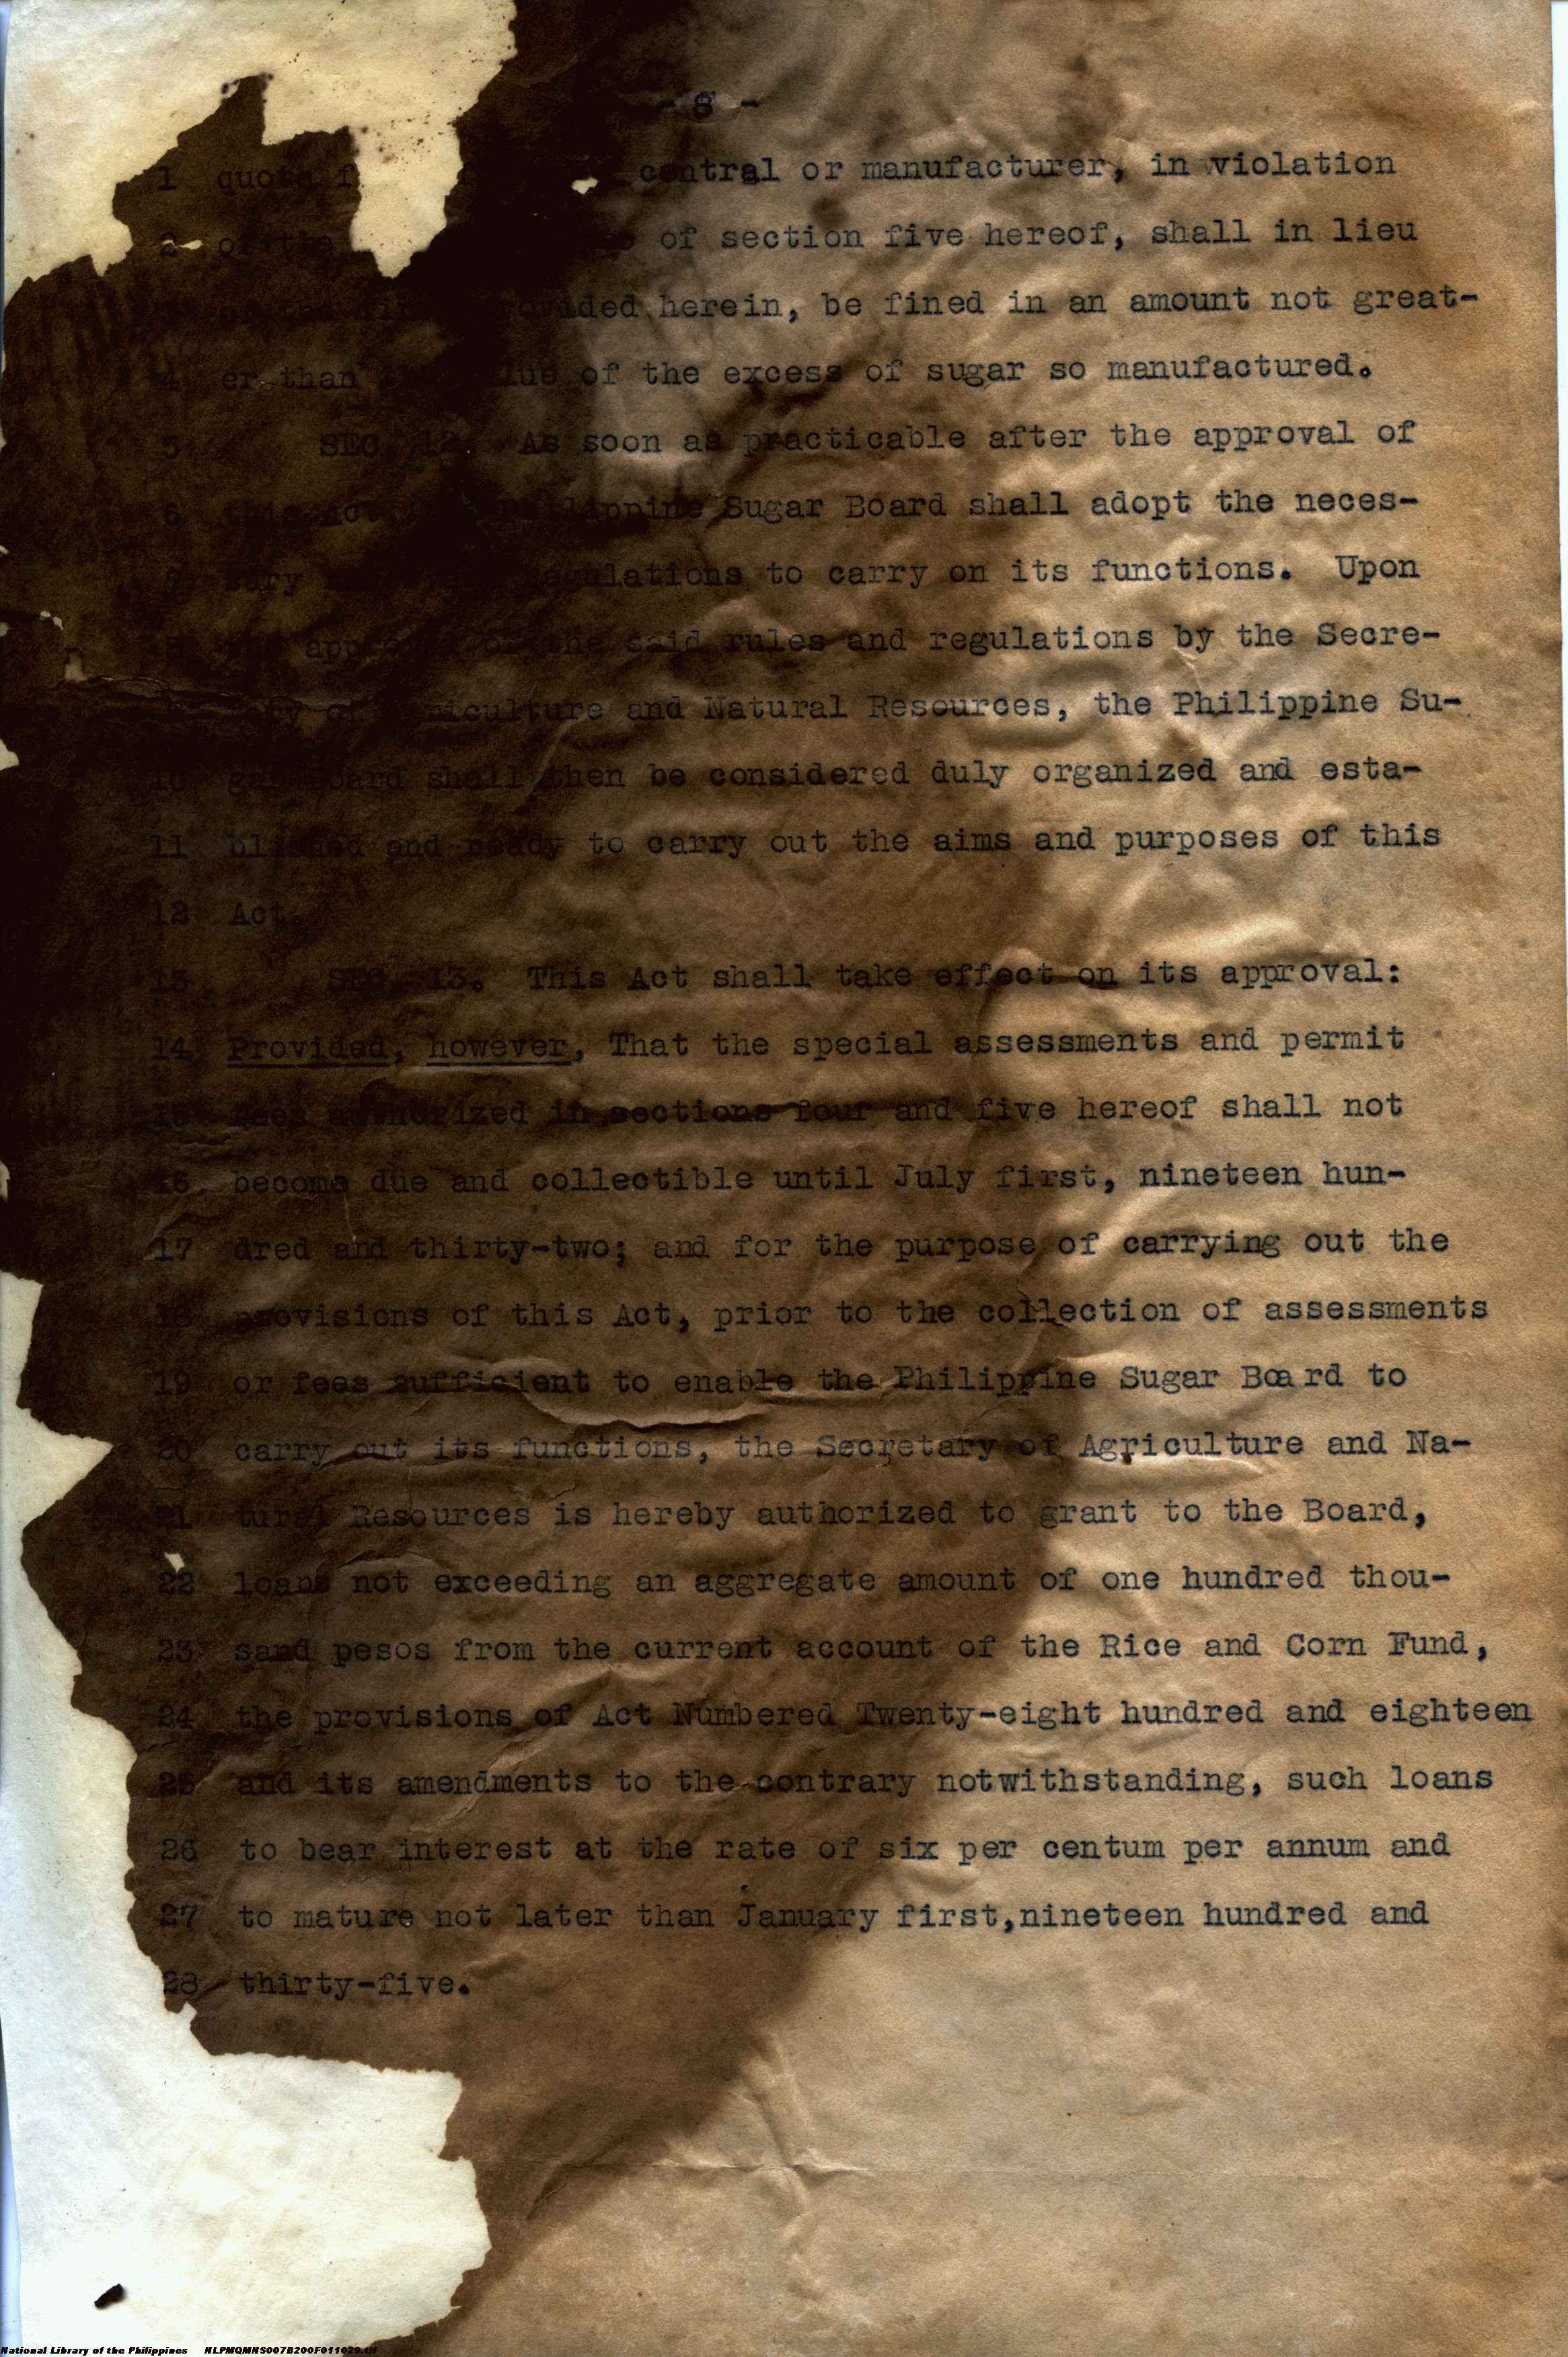 - 8 -
1 quota central or manufacturer, in violation
2 of the of section five hereof, shall in lieu
herein, be fined in an amount not great-
4 er than of the excess of sugar so manufactured.
5 SEC. As soon as practicable after the approval of
6 this Act Philippine Sugar Board shall adopt the neces-
7 sary regulations to carry on its functions. Upon
the said rules and regulations by the Secre-
of Agriculture and Natural Resources, the Philippine Su-
10 gar Board shall then be considered duly organized and esta-
11 blished and ready to carry out the aims and purposes of this
12 Act.
13 SEC. 13. This Act shall take effect on its approval:
14 Provided, however, That the special assessments and permit
15 fees authorized in sections four and five hereof shall not
16 become due and collectible until July first, nineteen hun-
17 dred and thirty-two; and for the purpose of carrying out the
18 provisions of this Act, prior to the collection of assessments
19 or fees sufficient to enable the Philippine Sugar Board to
20 carry out its functions, the Secretary of Agriculture and Na-
21 tural Resources is hereby authorized to grant to the Board,
22 loans not exceeding an aggregate amount of one hundred thou-
23 sand pesos from the current account of the Rice and Corn Fund,
24 the provisions of Act Numbered Twenty-eight hundred and eighteen
25 and its amendments to the contrary notwithstanding, such loans
26 to bear interest at the rate of six per centum per annum and
27 to mature not later than January first,nineteen hundred and
28 thirty-five.
National Library of the Philippines NLPMQMNS007B200F011029.tif